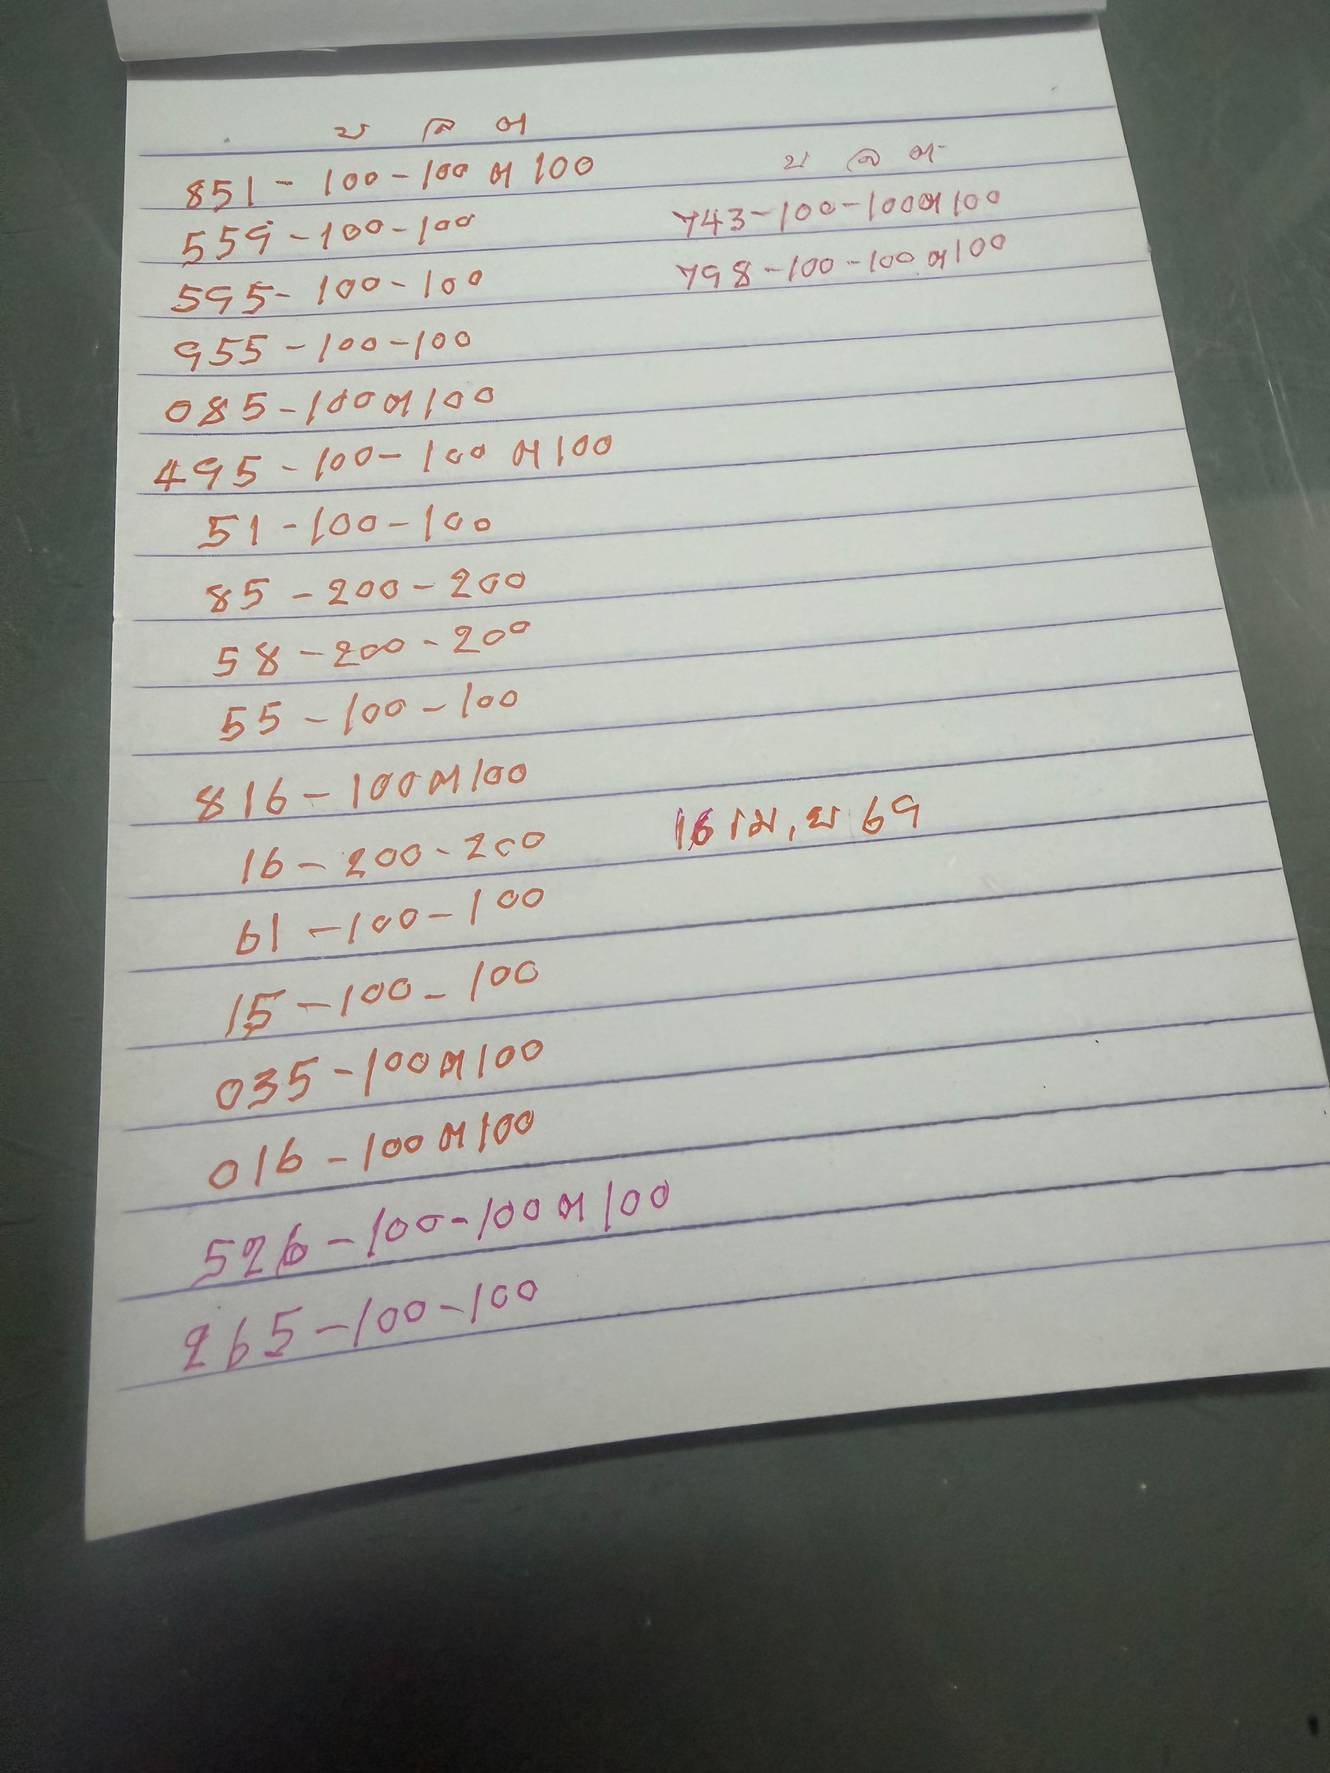 บ ล ต
851 - 100 - 100 ต 100
559 - 100 - 100
595 - 100 - 100
955 - 100 - 100
085 - 100 ต 100
495 - 100 - 100 ต 100
51 - 100 - 100
85 - 200 - 200
58 - 200 - 200
55 - 100 - 100
816 - 100 ต 100
16 - 200 - 200
61 - 100 - 100
15 - 100 - 100
035 - 100 ต 100
016 - 100 ต 100
526 - 100 - 100 ต 100
265 - 100 - 100
บ ล ต
743 - 100 - 100 ต 100
798 - 100 - 100 ต 100
16 เม.ย 69